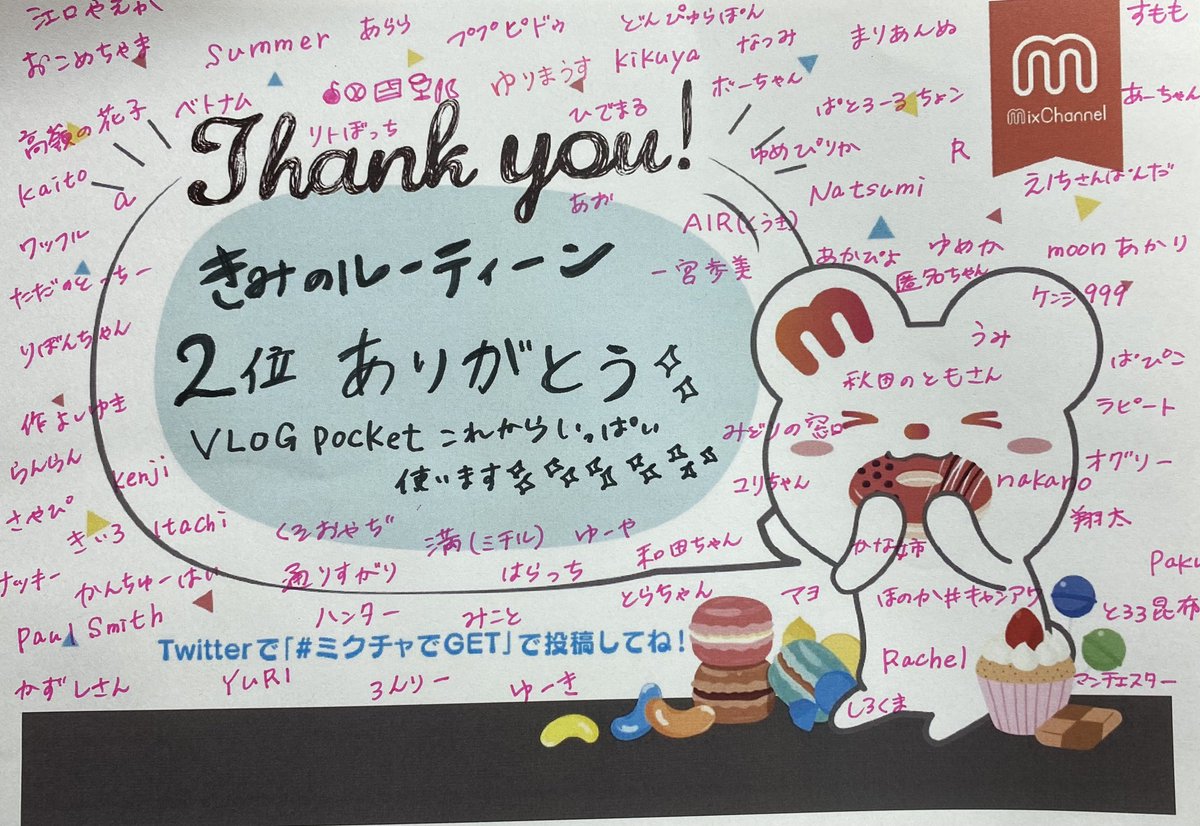 江口やえか
あらら
ププピドゥ
どんぴゅらぽん
すもも
おこめちゃま
Summer
kikuya
なつみ
まりあんぬ
MixChannel
ゆりまうす
ボーちゃん
あーちゃん
高嶺の花子
ベトナム
リトぼっち
ひでまる
ぱとろーるちょン
Thank you!
ゆめぴりか
R
kaito
a
あが
Natsumi
えいちさんはんだ
ワッフル
AIR(とうき)
きみのルーティーン
一宮歩美
あかぴよ
ゆめか
moonあかり
ただのとっちー
匿名ちゃん
ケンシ999
りぼんちゃん
2位 ありがとう
うみ
ぱぴこ
秋田のともさん
作よしゆき
VLOG pocket これからいっぱい
みどりの窓口
ラピート
らんらん
kenji
使います
ユリちゃん
nakano
オグリー
さやぴ
きいろ
Itachi
くそおやぢ
満(ミチル)
ゆーや
和田ちゃん
翔太
ナッキー
かんちゅーはい
通りすがり
はらっち
とらちゃん
かな市
Paku
Paul Smith
ハンター
みこと
マヨ
ほのか#キャンアワ
とろろ昆布
Twitterで「#ミクチャでGET」で投稿してね!
Rachel
かずしさん
YURI
ろんりー
ゆーき
しろくま
マンチェスター